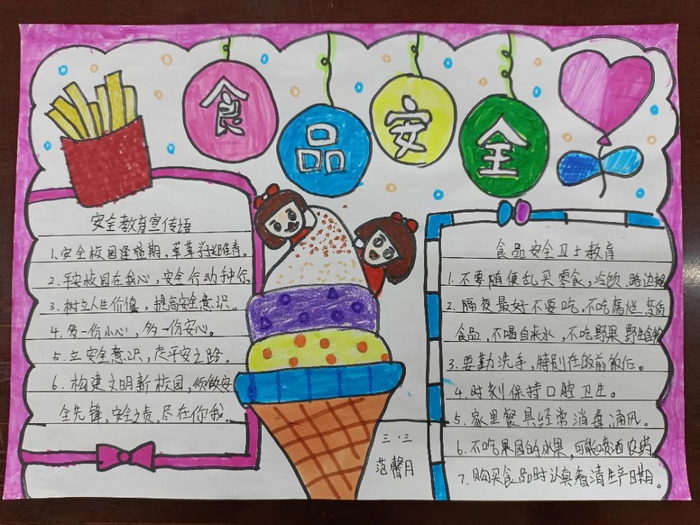 食品安全
安全教育宣传语
1.安全校园
2.平安校园在我心,安全行动种你
3.树立人生价值,提高安全意识。
4.多一份小心,多一份安心。
5.立安全意识,走平安之路。
6.构建文明新校园,
全先锋,安全之责,尽在你我
食品安全卫士教育
1.不要随便乱买零食,冷饮、路边
2.隔夜最好不要吃,不吃腐烂、变质
食品,不喝自来水,不吃野果
3.要勤洗手,特别
4.时刻保持口腔卫生。
5.家里餐具经常消毒通风。
6.不吃果园的水果,可能喷洒农药
7.购买食品时认真看清生产日期。
三·三
范馨月